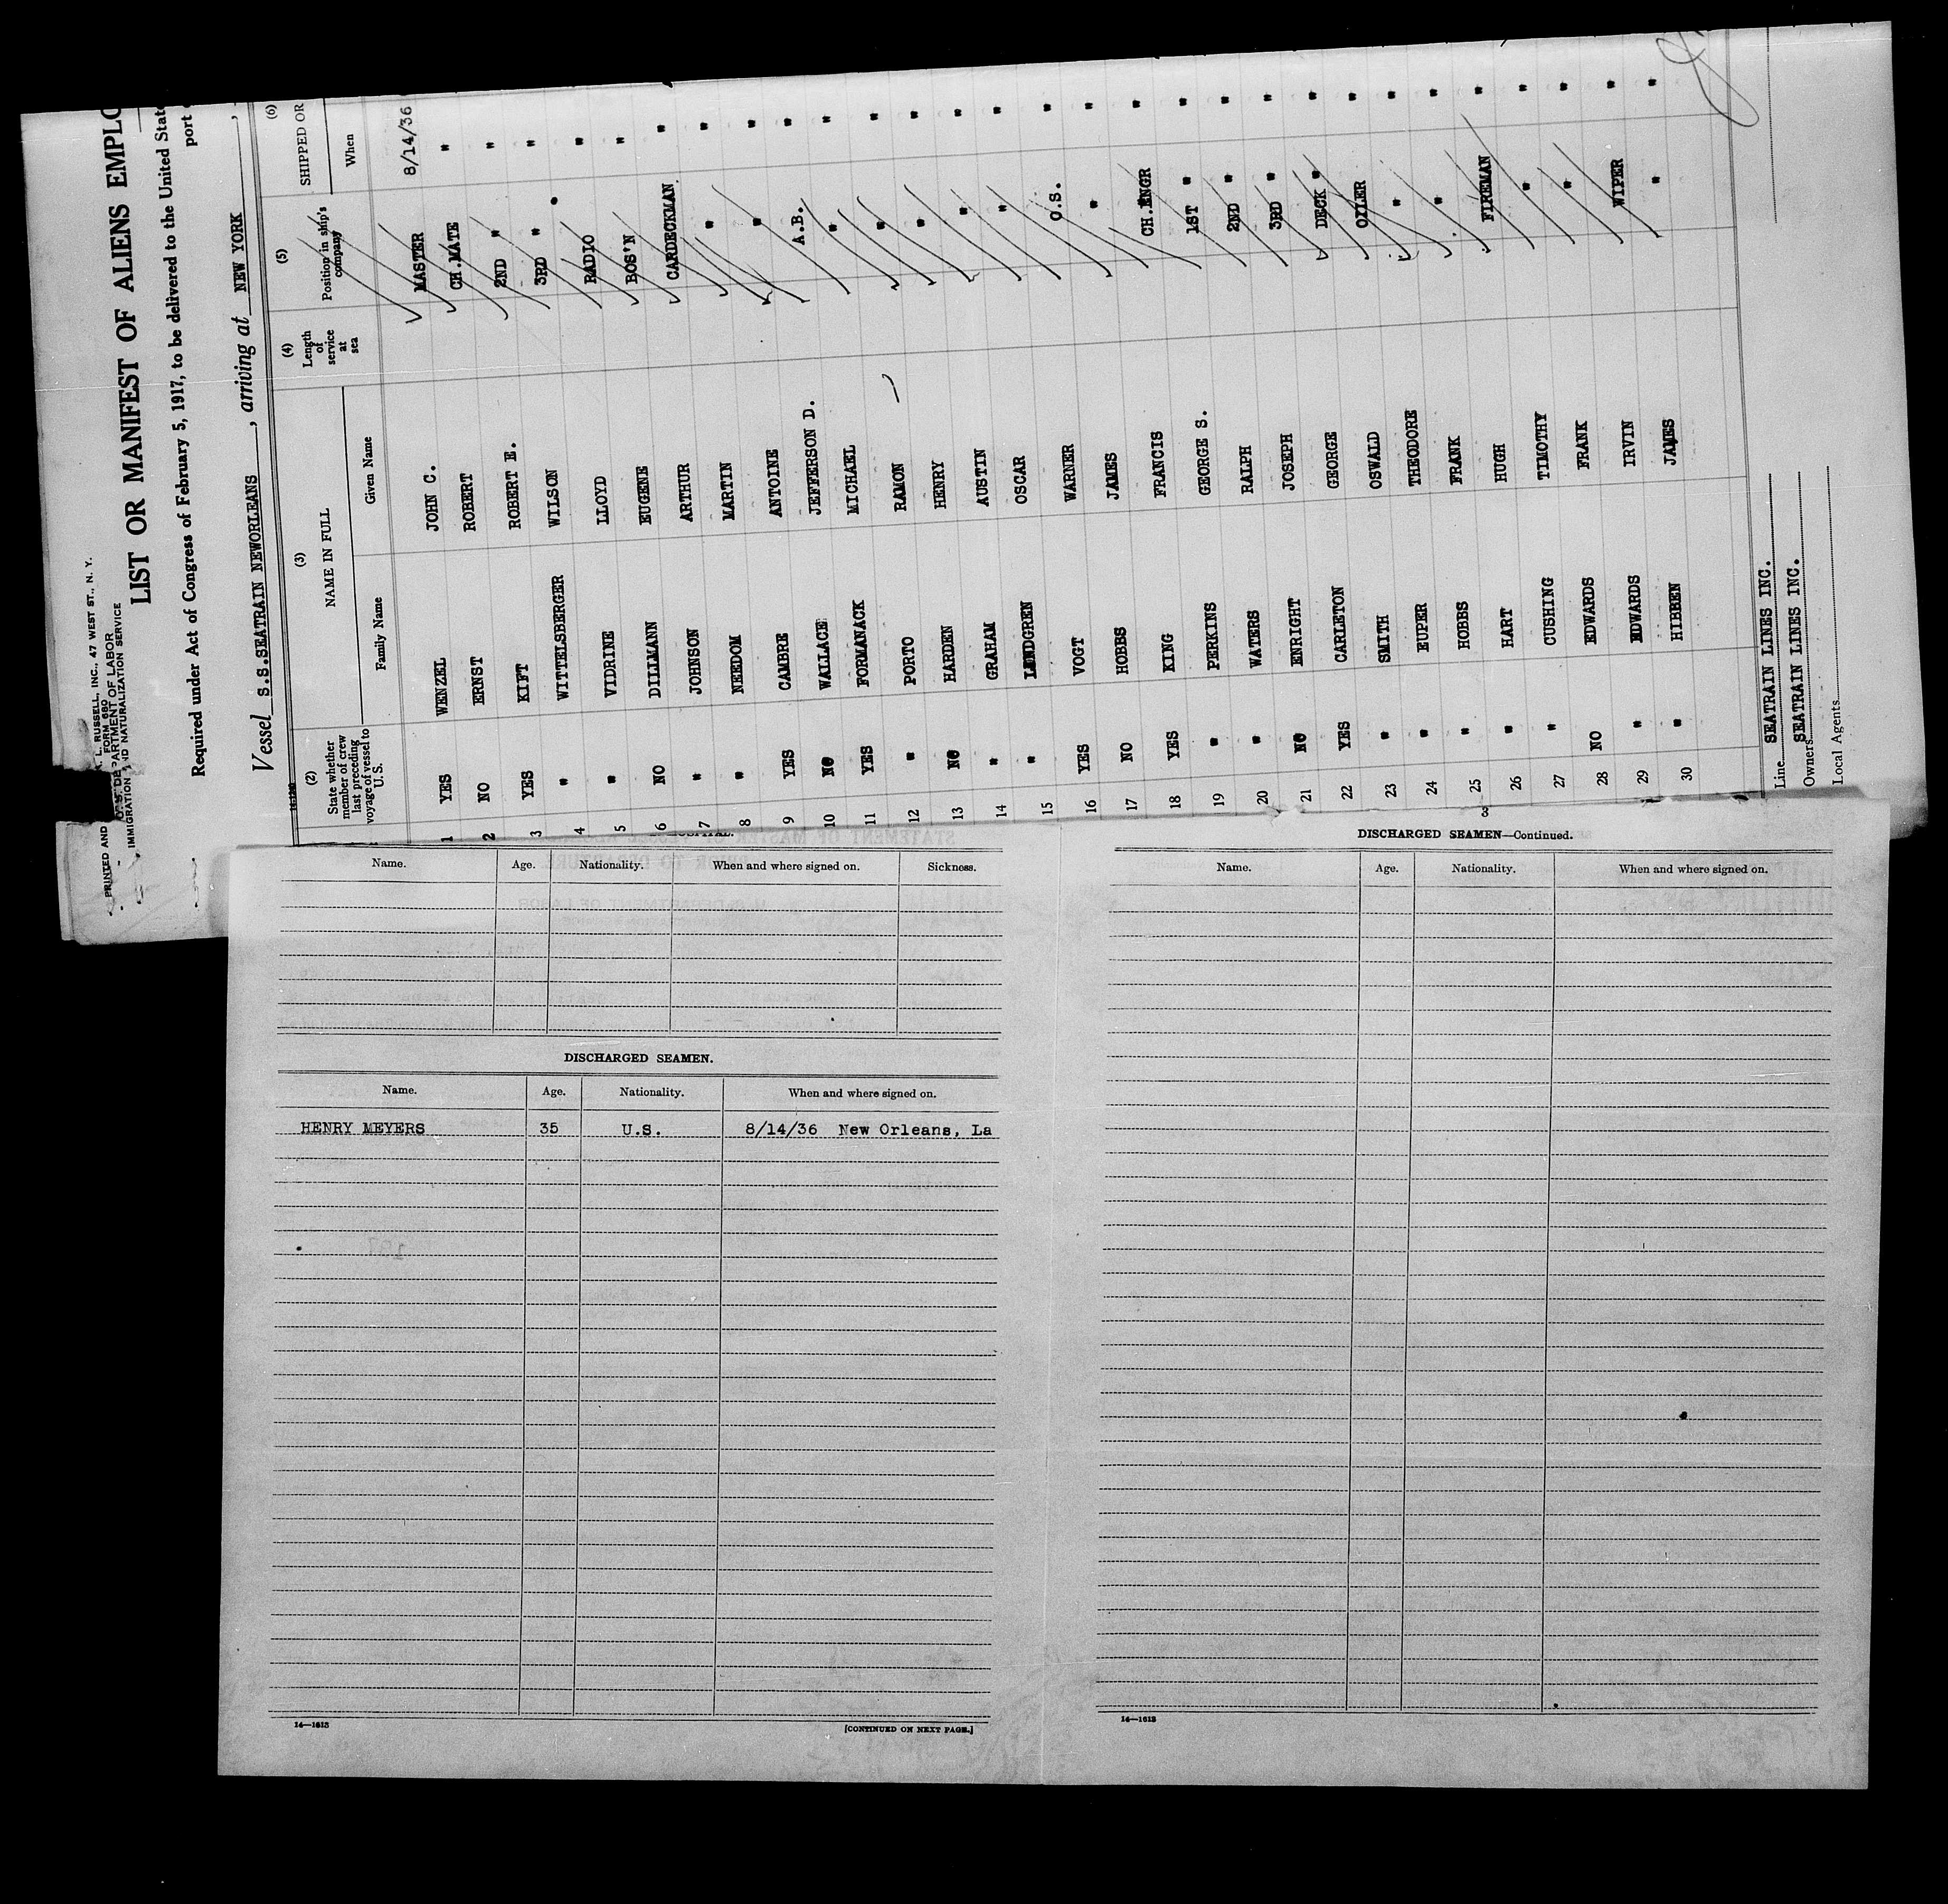 PRINTED AND
A. L. RUSSELL, INC., 47 WEST ST., N. Y.
FORM 680
U. S. DEPARTMENT OF LABOR
IMMIGRATION AND NATURALIZATION SERVICE
LIST OR MANIFEST OF ALIENS EMPLO
Required under Act of Congress of February 5, 1917, to be delivered to the United State
port
Vessel S.S.SEATRAIN NEWORLEANS, arriving at NEW YORK,
(2) (3) (4) (5) (6)
State whether member of crew last preceding voyage of vessel to U.S. NAME IN FULL Length of service at sea Position in ship's company SHIPPED OR
Family Name Given Name When
1 YES WENZEL JOHN C. MASTER 8/14/36
2 NO ERNST ROBERT CH.MATE "
3 YES KIFT ROBERT E. 2ND " "
4 " WITTELSBERGER WILSON 3RD " "
5 " VIDRINE LLOYD RADIO "
6 NO DILLMANN EUGENE BOS'N "
7 " JOHNSON ARTHUR CARDECKMAN "
8 " NEEDOM MARTIN " "
9 YES CAMBRE ANTOINE " "
10 NO WALLACE JEFFERSON D. A.B. "
11 YES FORMANACK MICHAEL " "
12 " PORTO RAMON " "
13 NO HARDEN HENRY " "
14 " GRAHAM AUSTIN " "
15 " LUNDGREN OSCAR " "
16 YES VOGT WARNER O.S. "
17 NO HOBBS JAMES " "
18 YES KING FRANCIS CH.ENGR "
19 " PERKINS GEORGE S. 1ST " "
20 " WATERS RALPH 2ND " "
21 NO ENRIGHT JOSEPH 3RD " "
22 YES CARLETON GEORGE DECK " "
23 " SMITH OSWALD OILER "
24 " EUPER THEODORE " "
25 " HOBBS FRANK " "
26 " HART HUGH FIREMAN "
27 " CUSHING TIMOTHY " "
28 NO EDWARDS FRANK " "
29 " EDWARDS IRVIN WIPER "
30 " HIBBEN JAMES " "
Line SEATRAIN LINES INC.
Owners SEATRAIN LINES INC.
Local Agents
Name. Age. Nationality. When and where signed on. Sickness.
DISCHARGED SEAMEN.
Name. Age. Nationality. When and where signed on.
HENRY MEYERS 35 U.S. 8/14/36 New Orleans, La
14—1613
[CONTINUED ON NEXT PAGE.]
3
DISCHARGED SEAMEN—Continued.
Name. Age. Nationality. When and where signed on.
14—1613